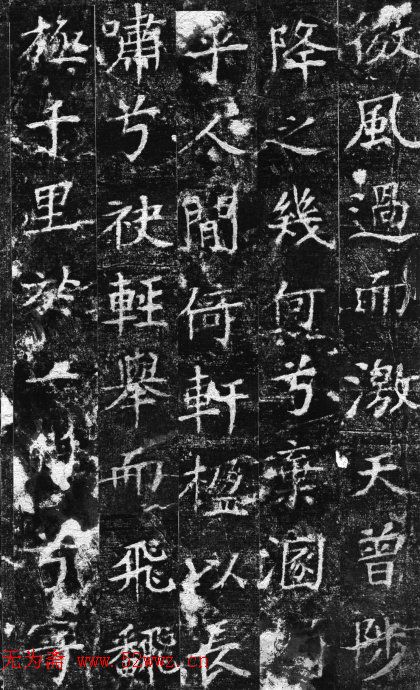 微風過而激天曾陟
降之幾何兮棄溷
乎人間倚軒楹以長
嘯兮袂輕舉而飛翻
極千里於一瞬兮寄
无为斋 www.52wwz.cn